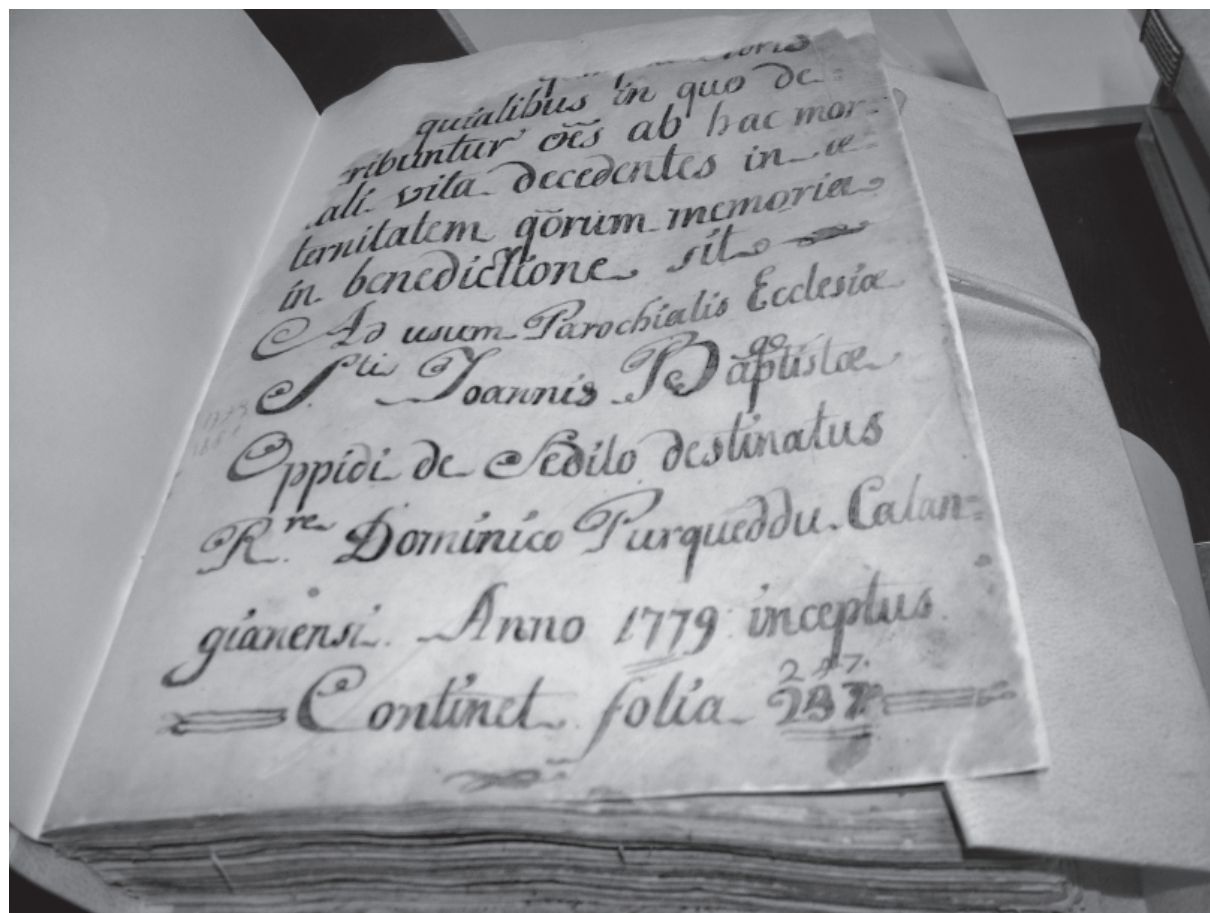 quialibus in quo de-
ribuntur oēs ab hac mor-
ali vita decedentes in æ-
ternitatem qōrum memoria
in benedictione sit
Ad usum Parochialis Ecclesiæ
S.ti Joannis Baptistæ
Oppidi de Sedilo destinatus
R.re Dominico Purqueddu Calan-
gianensi. Anno 1779 inceptus
297.
Continet folia 297